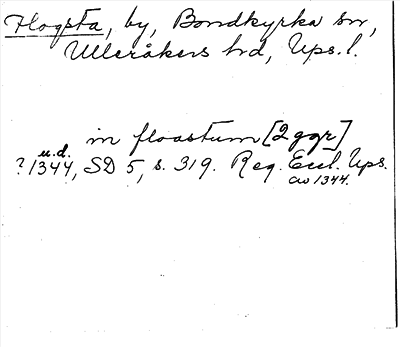 Flogsta, by, Bondkyrka sn,
Ulleråkers hd, Ups. l.
in floastum [2 ggr]
u.d.
? 1344, SD 5, s. 319. Reg. Eccl. Ups.
av 1344.